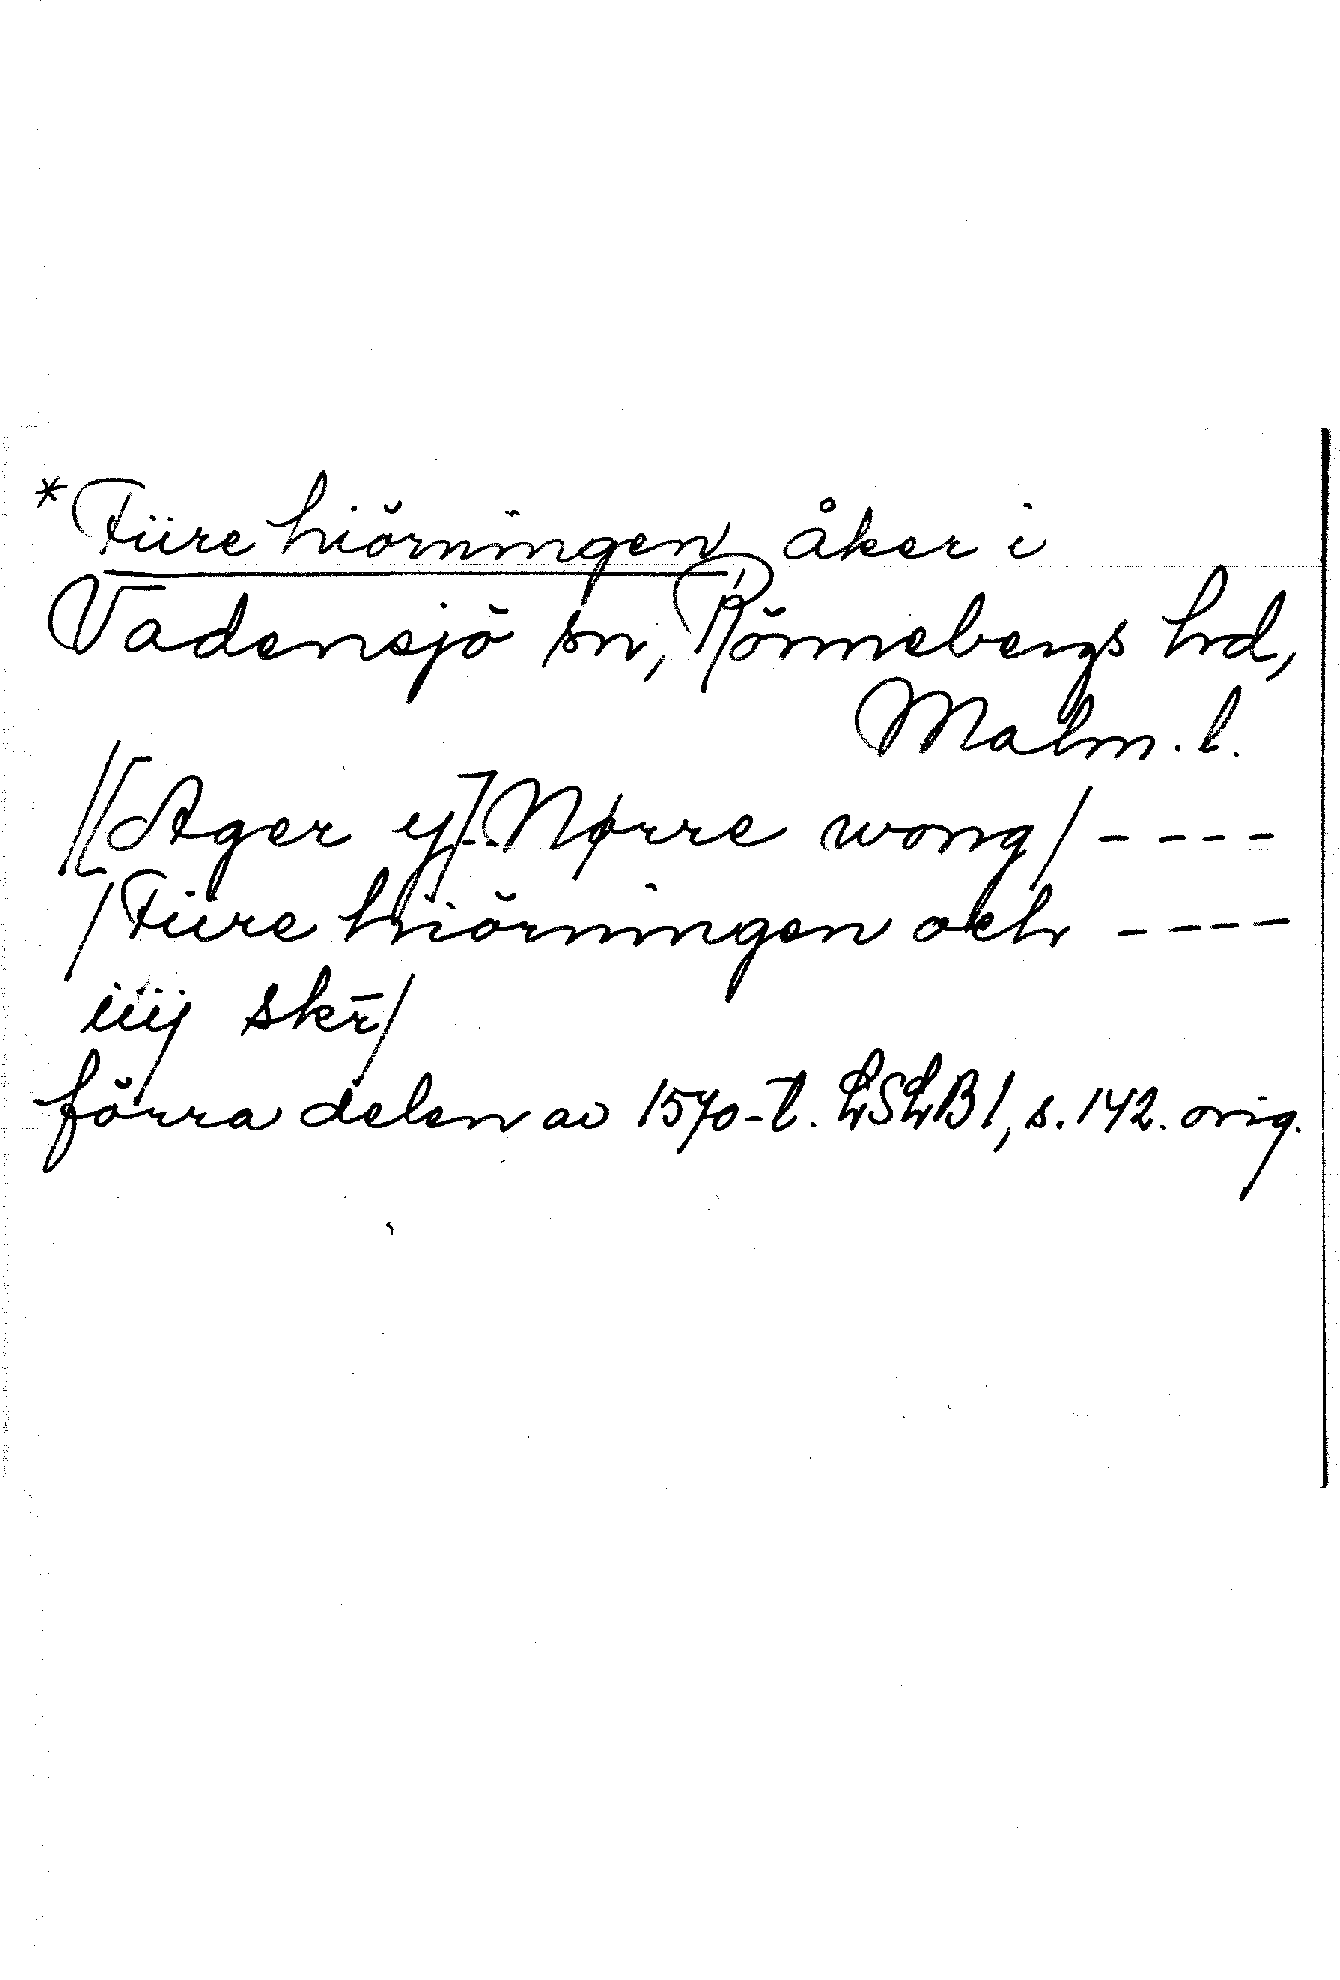 *Fiire hiörningen, åker i
Vadensjö sn, Rönnebergs hd,
Malm. l.
/[Ager y] Nørre wong/ ----
/Fiire hiörningen och ----
iiij skr̄/
förra delen av 1570-t. LSLB 1, s. 142. orig.